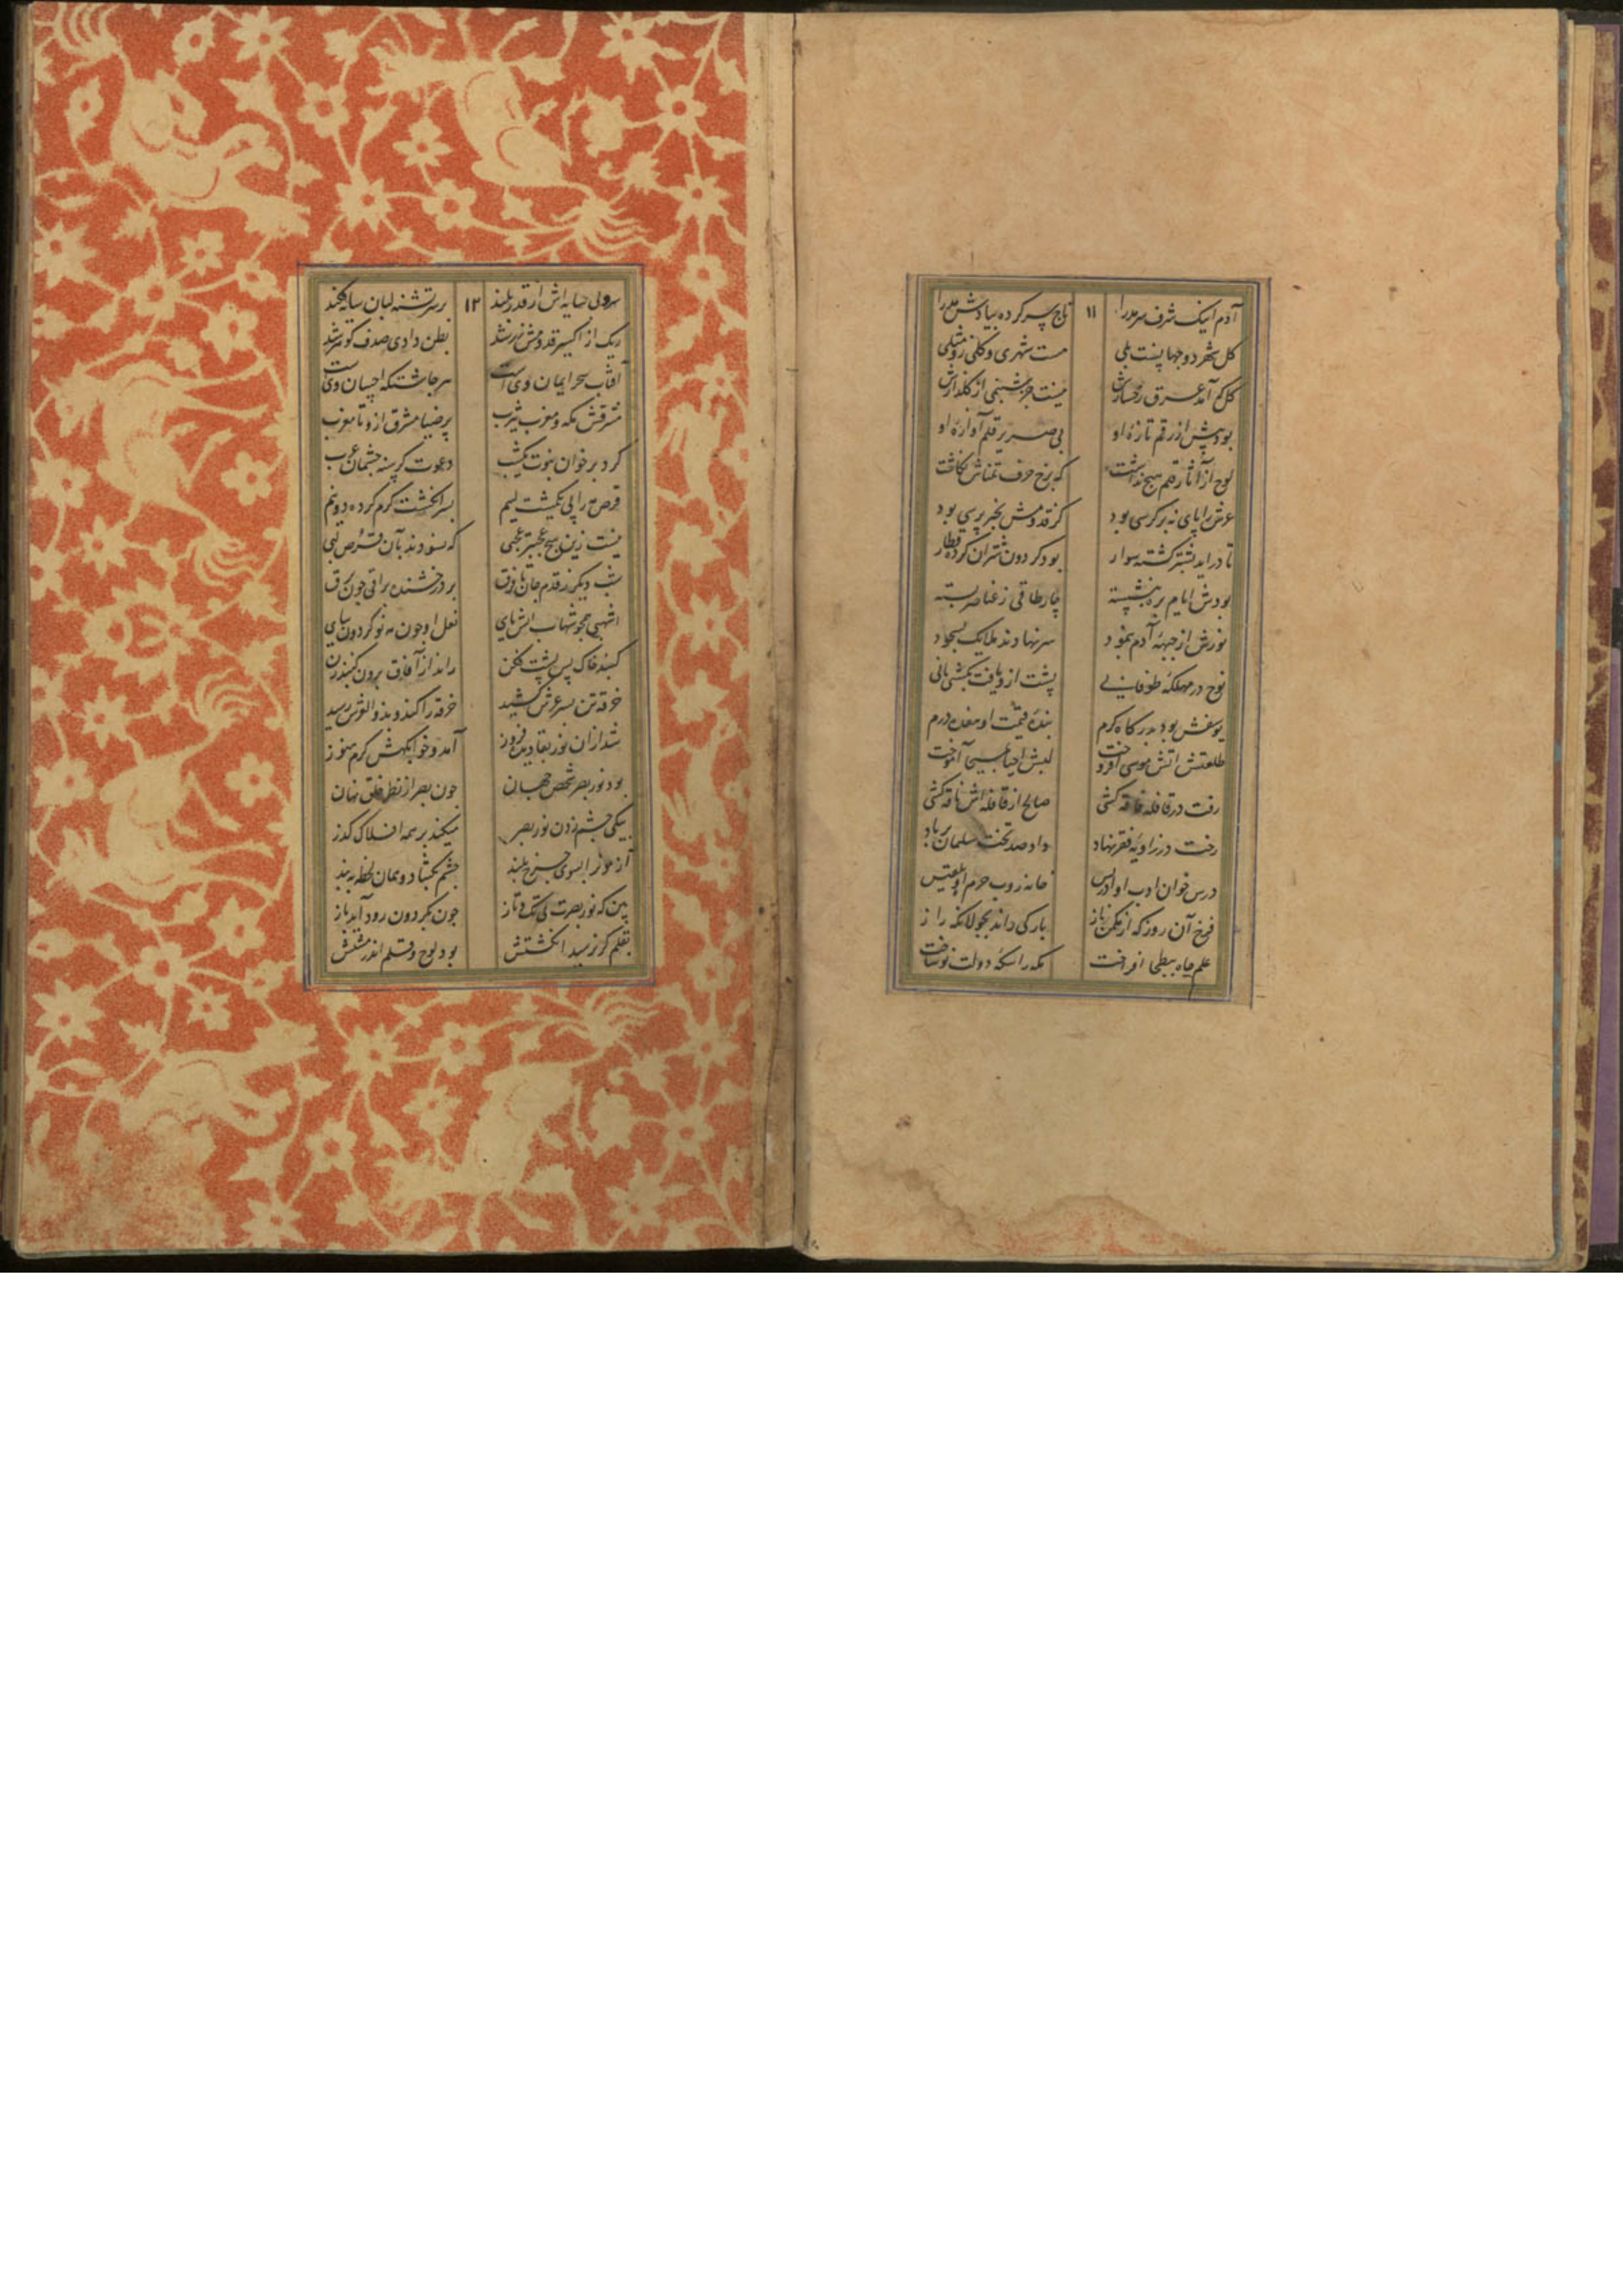 آدم اینک شرف مر مدرا ۱۱ تاج سر کرده بیا دش مدرا
کل شهر دو جها نست بلی مست شهری و کلی زو مثلی
کل که آمد عرق رخسارش نیست جز شبنمی از کلذارش
بود پیش از رقم تازه او بی صریر قلم آوازه او
لوح از آثار رقم هیچ نداشت که برخ حرف تمناش نکاشت
عرش را پای نه بر کرسی بود کز قدومش بخبر پرسی بود
تا در اید بشتر کشته سوار بود کردون شتران کرده قطار
بودش ایام بره بنشسته چار طاقی ز عناصر بسته
نورش از جبهه آدم بنمود سر نهادند ملایک بسجود
نوح در مهلکه طوفانی پشت ازو یافت بکشتی بانی
یوسفش بود بدرکاه کرم بنده قیمت او هفده درم
طلعتش اتش موسی افروخت لبش احیا بمسیحا آموخت
رفت در قافله فاقه کشی صالح از قافله اش ناقه کشی
رخت در زاویه فقر نهاد داد صد تخت سلیمان بر باد
درس خوان ادب او ادریس خانه روب حرم او بلقیس
فرخ آن روز که از مکمن راز بارکی داند بجولانکه راز
علم جاه ببطحا افراخت مکه را سکه دولت نو ساخت
سروبی سایه اش از قدر بلند ۱۲ بر سر تشنه لبان سایه فکند
ریک از اکسیر قدومش زر شد بطن وادی صدف کوهر شد
آفتاب سحر ایمان وی است هر جا شتکه احسان وی است
مشرقش مکه و مغرب یثرب پر ضیا مشرق ازو تا مغرب
کرد بر خوان نبوت یکشب دعوت کرسنه چشمان عرب
قرص مه را پی یکمشت لئیم بسر انکشت کرم کرده دو نیم
نیست زین هیچ عجبتر عجبی که نسودند بآن قرص لبی
شب دیکر ز قدم جان تا فرق بر درخشنده براقی چون برق
اشهبی همچو شهاب اتش پای نعل او چون مه نو کردون سای
کنبد خاک پس پشت فکن راند از آفاق برون کنبد زن
خرقه تن بسر عرش کشید خرقه را کند و بذو العرش رسید
شد ازان نور بقا دیده فروز آمد و خوابکهش کرم هنوز
بود نور بصر شخص جهان چون بصر از نظر خلق نهان
بیکی چشم زدن نور بصر میکند بر همه افلاک کذر
آن هنر را بسوی چرخ بلند چشم بکشا و همان لحظه ببند
بین که نور بصرت بی تک و تاز چون بکردون رود آید باز
بقلم کر نرسید انکشتش بود لوح و قلم اندر مشتش